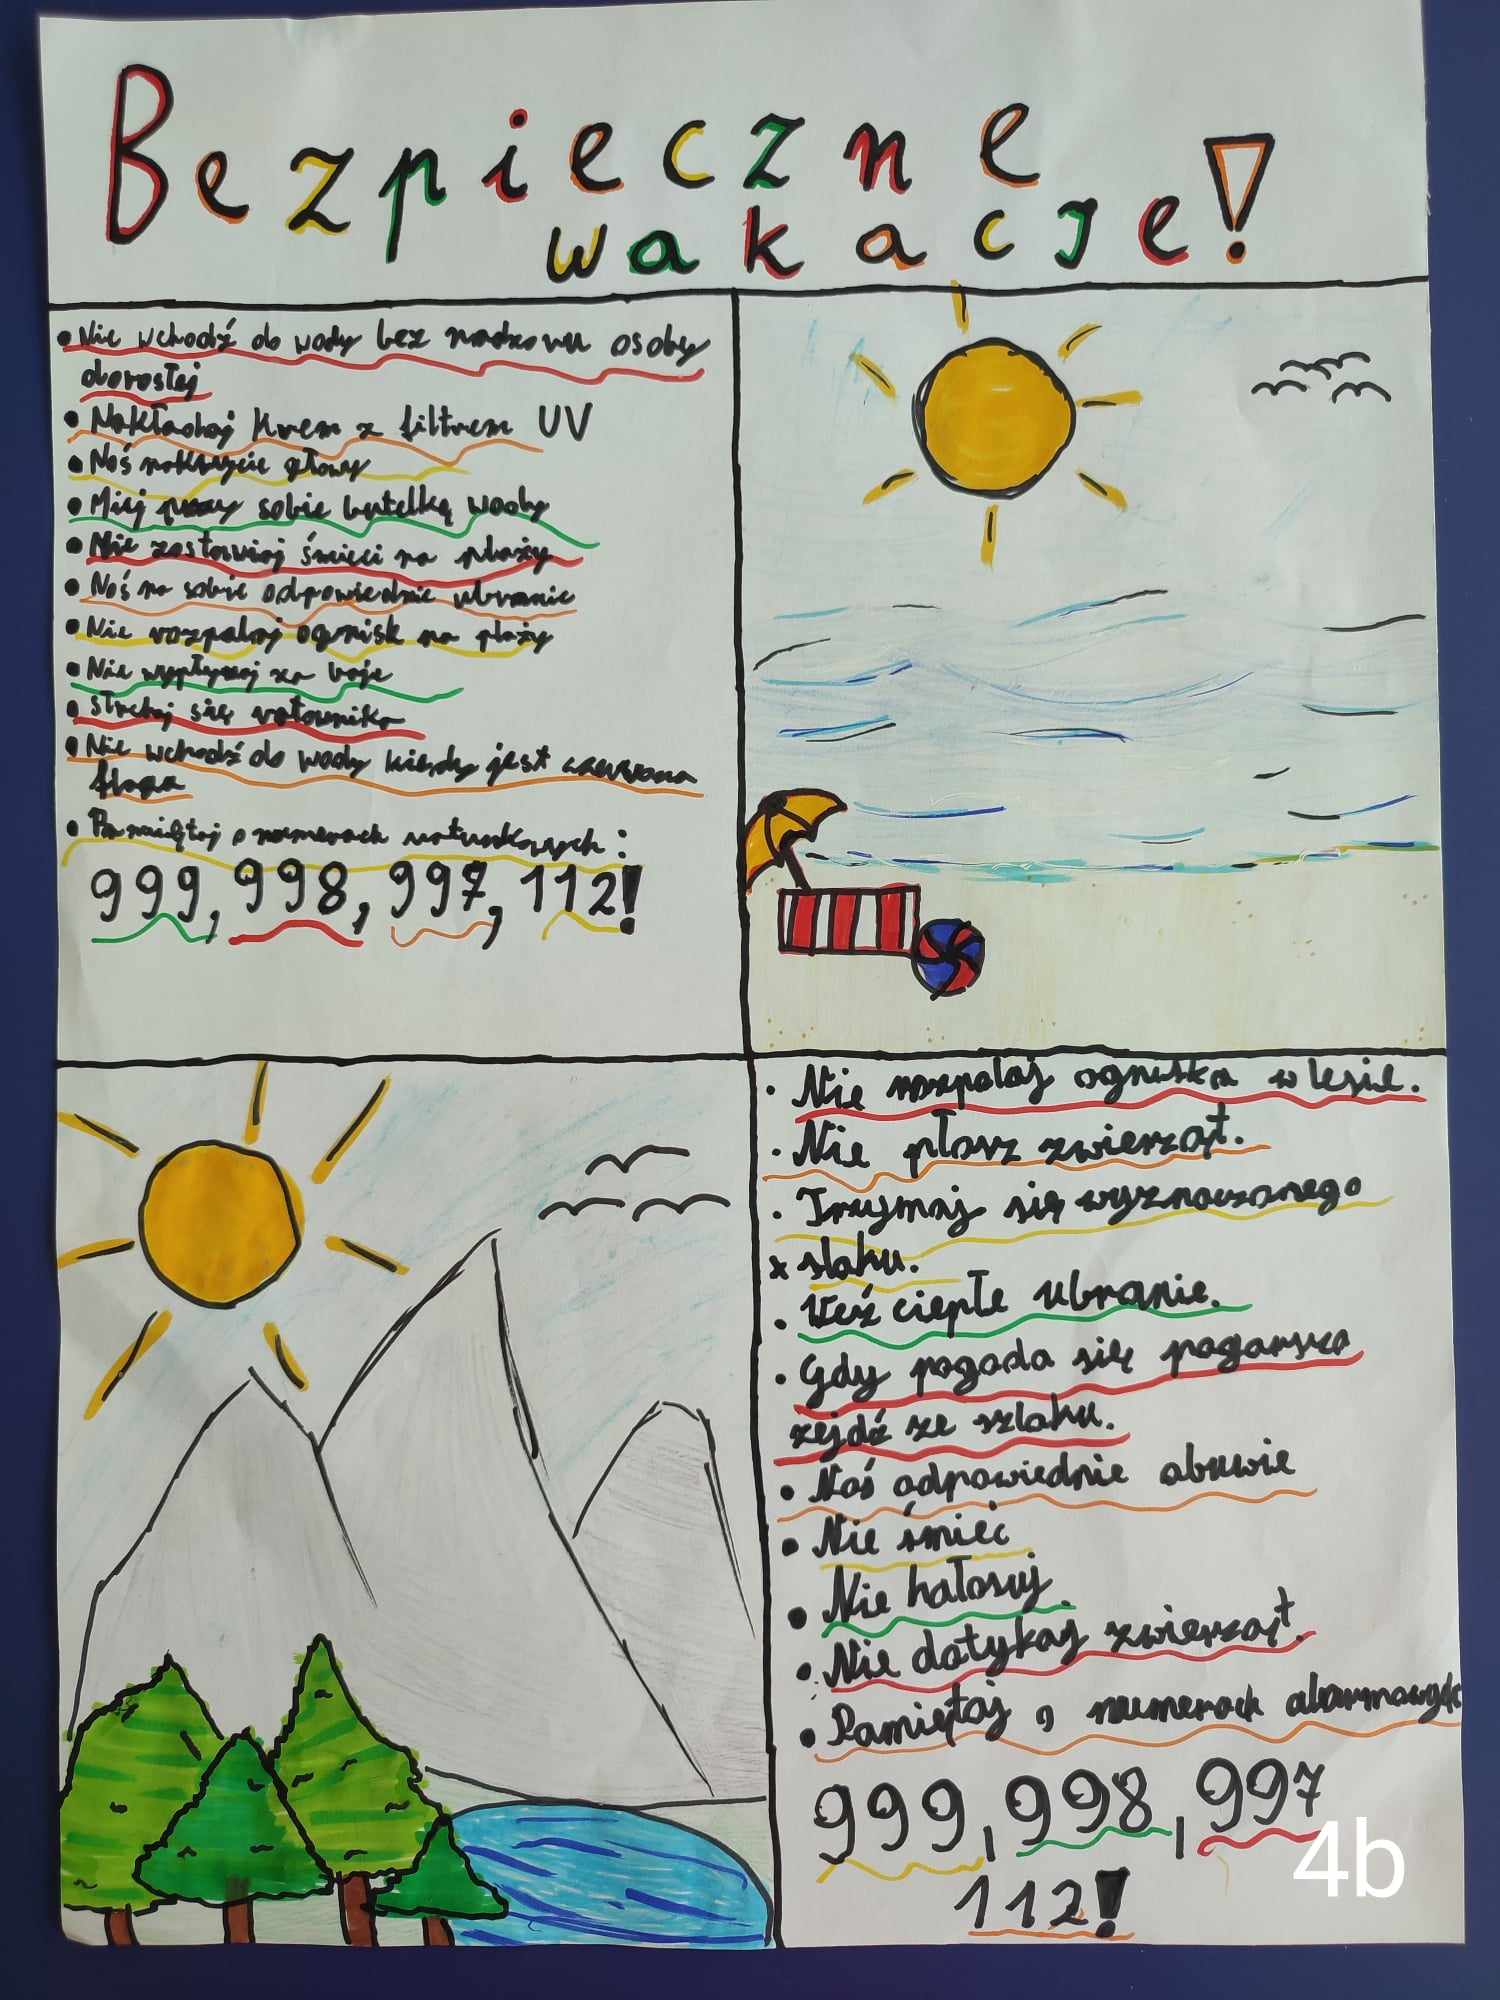 Bezpieczne
wakacje!
• Nie wchodź do wody bez nadzoru osoby
dorosłej
• Nakładaj krem z filtrem UV
• Noś nakrycie głowy
• Miej przy sobie butelkę wody
• Nie zostawiaj śmieci na plaży
• Noś na sobie odpowiednie ubranie
• Nie rozpalaj ognisk na plaży
• Nie wypływaj za boje
• Słuchaj się ratownika
• Nie wchodź do wody kiedy jest czerwona
flaga
• Pamiętaj o numerach ratunkowych:
999, 998, 997, 112!
• Nie rozpalaj ogniska w lesie.
• Nie płosz zwierząt.
• Trzymaj się wyznaczonego
szlaku.
• Weź ciepłe ubranie.
• Gdy pogoda się pogarsza
zejdź ze szlaku.
• Noś odpowiednie obuwie
• Nie śmieć
• Nie hałasuj
• Nie dotykaj zwierząt.
• Pamiętaj o numerach alarmowych
999, 998, 997
112!
4b